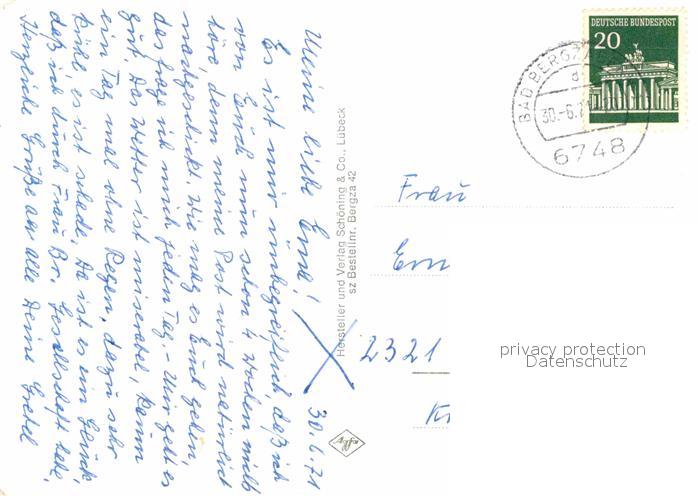 Meine liebe Erna! 30.6.71
Es ist mir unbegreiflich, daß ich
von Euch nun schon 4 Wochen nichts
höre, denn meine Post wird natürlich
nachgeschickt. Wie mag es Euch gehen,
das frage ich mich jeden Tag - Mir geht es
gut. Das Wetter ist miserabel, kaum
ein Tag mal ohne Regen, dazu sehr
kühl, es ist schade. Da ist es ein Glück,
daß ich durch Frau Br. Gesellschaft habe.
Herzliche Grüße an alle Deine Gretel
Hersteller und Verlag Schöning & Co., Lübeck
sz Bestellnr. Bergza 42
Agfa
DEUTSCHE BUNDESPOST
20
BAD BERGZ
d
30.-6.
6748
Frau
Ern
2321
Kr
privacy protection
Datenschutz